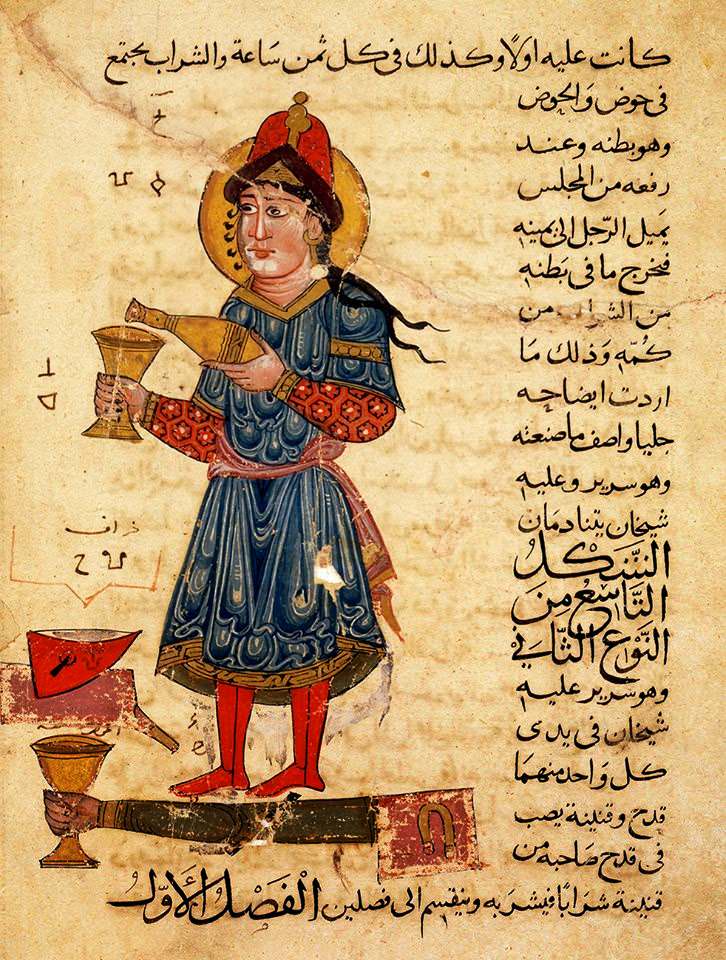 كانت عليه اولًا وكذلك في كل ثمن ساعة والشراب يجتمع
في حوض والحوض
وهو بطنه وعند
رفعه من المجلس
يميل الرّجل الى يمينه
فيخرج ما في بطنه
من الشراب من
كُمّه وذلك ما
اردت ايضاحه
جليا واصف ما صنعته
وهو سرير وعليه
شيخان يتنادمان
الشكل
التاسع من
النوع الثاني
وهو سرير عليه
شيخان في يدي
كل واحد منهما
قدح وقنينة يصب
في قدح صاحبه من
قنينة شرابًا فيشربه وينقسم الى فصلين الفصل الأوّل